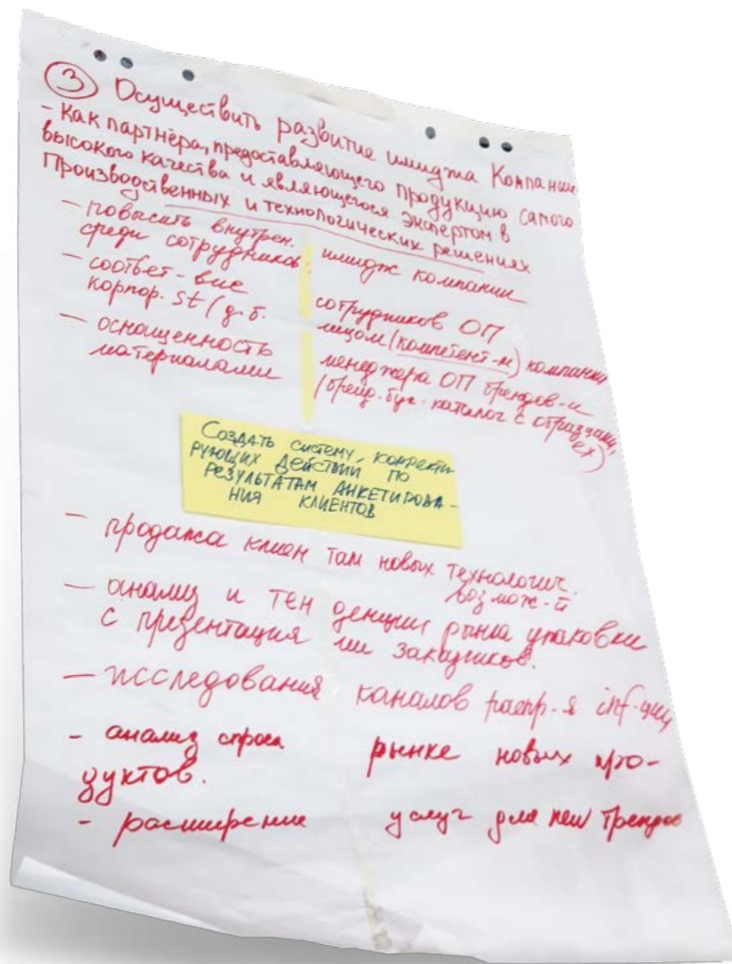 ③ Осуществить развитие имиджа Компании
- Как партнёра, предоставляющего продукцию самого
высокого качества и являющегося экспертом в
Производственных и технологических решениях
- повысить внутрен. имидж компании
среди сотрудников.
- соответ-вие сотрудников ОП
корпор. st (д.б. лицом (компетент-м) компании
- оснащенность менеджера ОП брендов-и
материалами (бренд.бук. каталог с образцами,
СОЗДАТЬ СИСТЕМУ, КОРРЕКТИ-
РУЮЩИХ ДЕЙСТВИЙ ПО
РЕЗУЛЬТАТАМ АНКЕТИРОВА-
НИЯ КЛИЕНТОВ
- продажа клиен там новых технологич.
возмож-й
- анализ и тен денции рынка упаковки
с презентация ми заказчиков.
- исследования каналов распр-я inf-ции
- анализ спроса рынке новых про-
дуктов.
- расширение услуг для new трендов